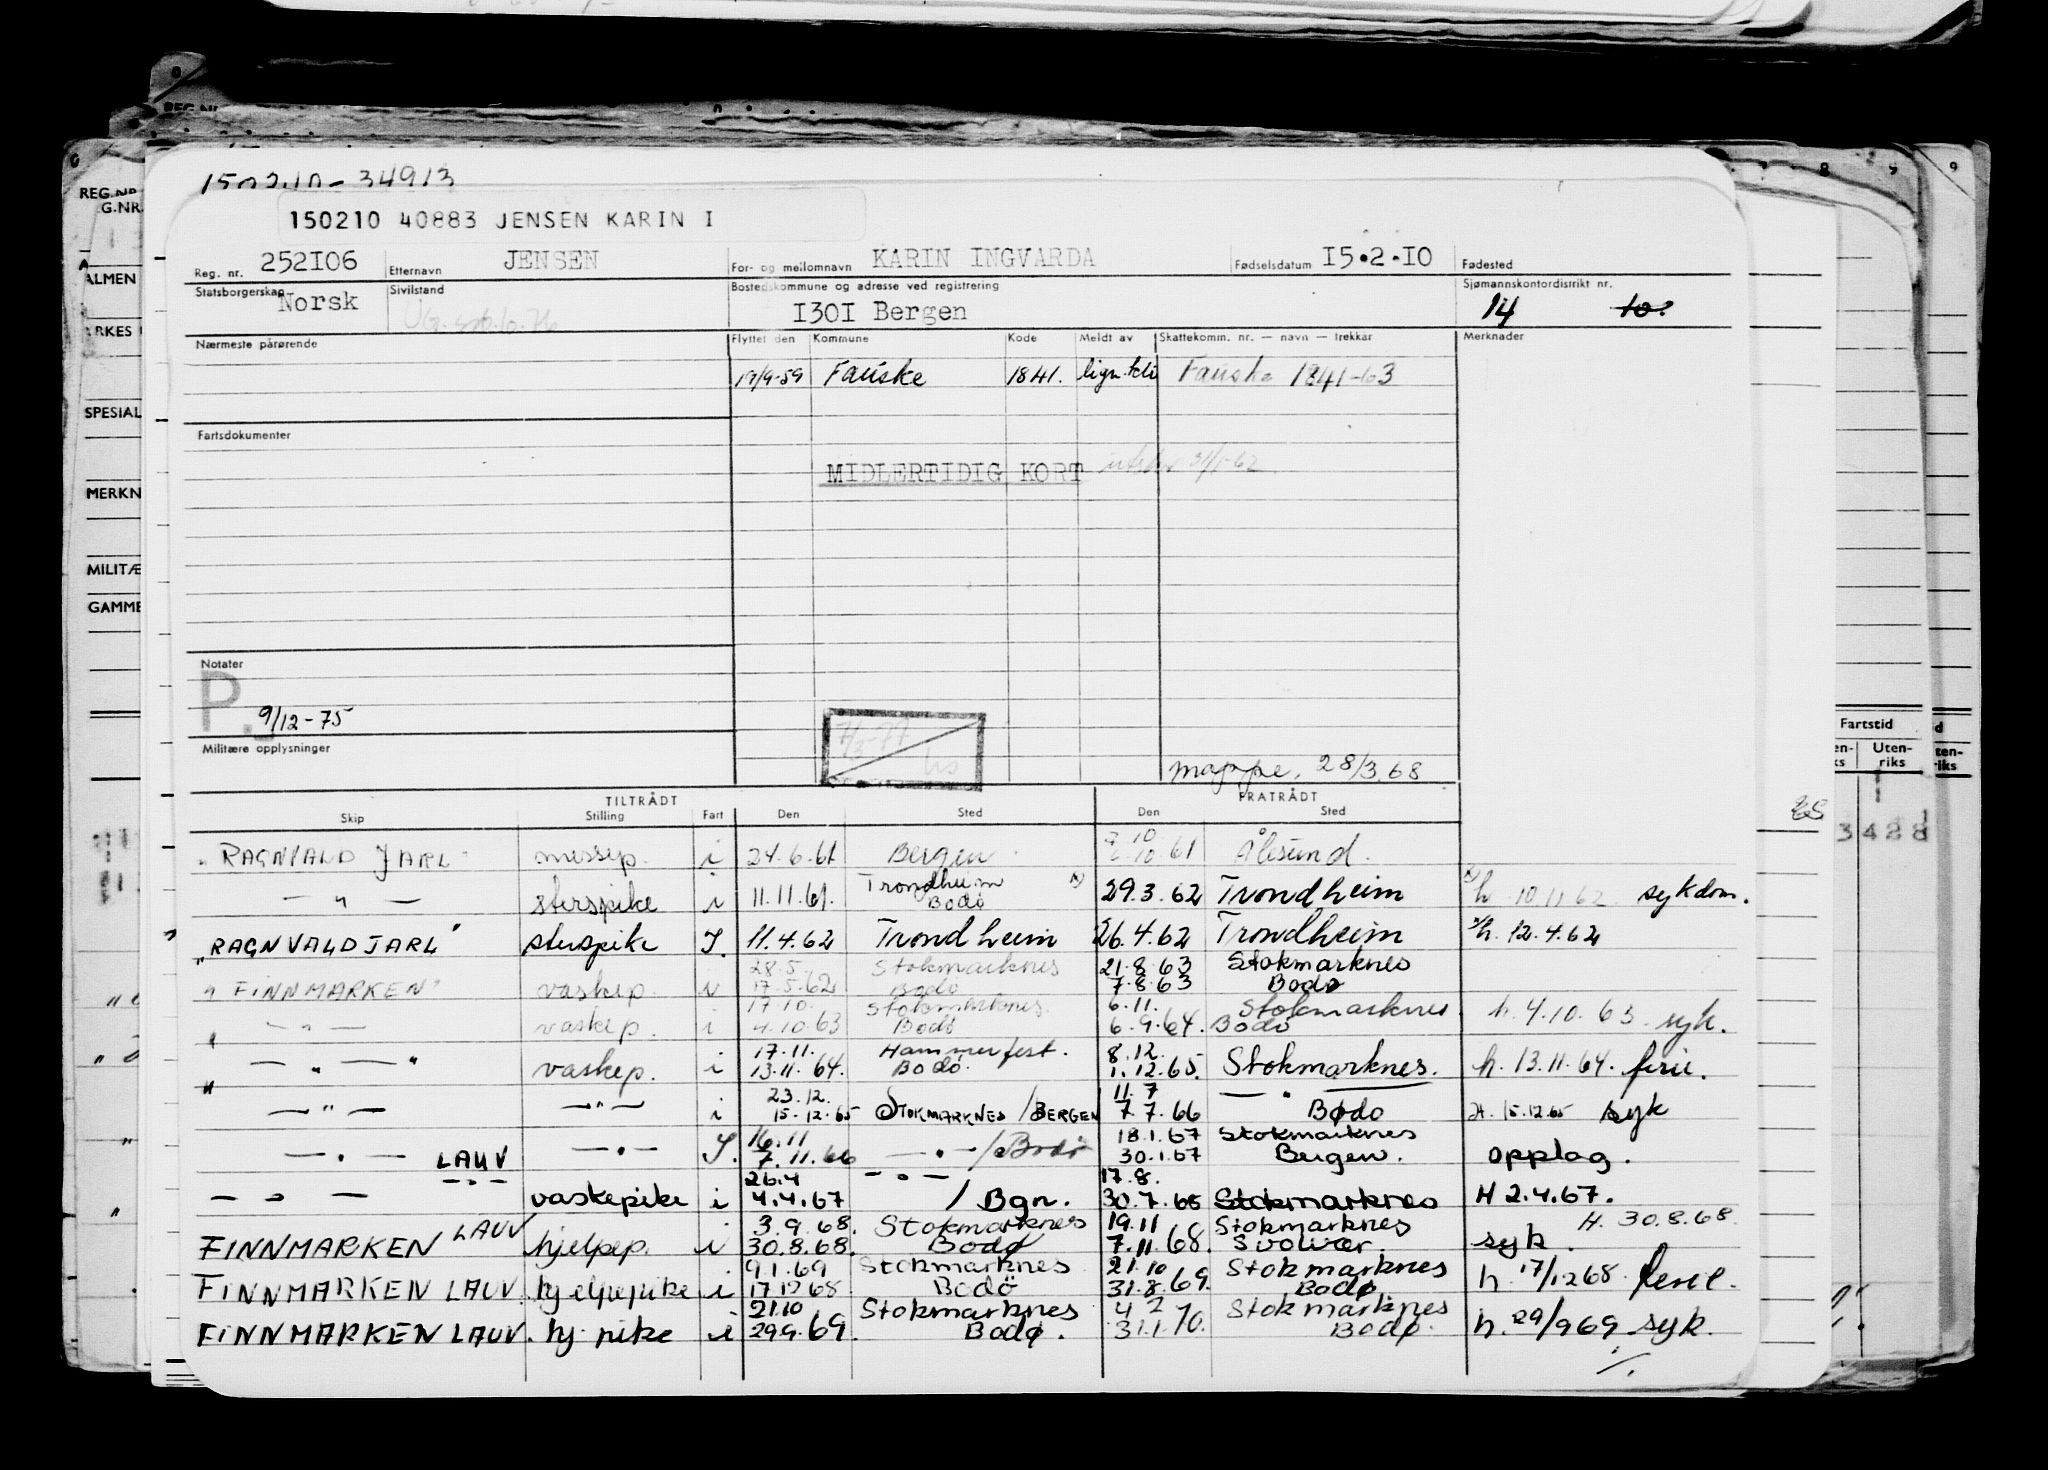 150210 - 34913
150210 40883 JENSEN KARIN I
Reg. nr. 252I06 Etternavn JENSEN For- og mellomnavn KARIN INGVARDA Fødselsdatum I5.2.I0 Fødested
Statsborgerskap Norsk Sivilstand Bostedskommune og adresse ved registrering I30I Bergen Sjømannskontordistrikt nr. 14 10.
Nærmeste pårørende Flyttet den Kommune Kode Meldt av Skattekomm. nr. — navn — trekkar Merknader
19/9-59 Fauske 1841. Fauske 1841-63
Fartsdokumenter
MIDLERTIDIG KORT 31/1-62
Notater
P.
9/12-75
Militære opplysninger
7/3-77
hs
mappe. 28/3.68
TILTRÅDT FRATRÅDT
Skip Stilling Fart Den Sted Den Sted
"RAGNVALD JARL" messep. i 24.6.61 Bergen 10.61 Ålesund.
— " — sterspike i 11.11.61. Trondheim Bodö 29.3.62 Trondheim h 10.11.62 sykdom.
"RAGNVALD JARL" sterspike I. 11.4.62 Trondheim 26.4.62 Trondheim h. 12.4.62
"FINNMARKEN" vaskep. i 28.5. 17.5.62 Stokmarknes Bodö 21.8.63 7.8.63 Stokmarknes Bodø
" — " — vaskep. i 17.10. 4.10.63 Stokmarknes. Bodö 6.11. 6.9.64. Stokmarknes Bodö h. 4.10.63 syk.
" — " — " vaskep. i 17.11. 13.11.64. Hammerfest. Bodö. 8.12. 1.12.65. Stokmarknes. h. 13.11.64. ferie.
— " — — " — i 23.12. 15.12.65 STOKMARKNES / BERGEN 11.7 7.7.66 — " — Bodo H. 15.12.65 syk
— " — LAUV — " — I. 16.11 7.11.66 — " — / Bodö 18.1.67 30.1.67 Stokmarknes Bergen. opplag.
— " — — " — vaskepike i 26.4 4.4.67 — " — / Bgn. 17.8. 30.7.68 Stokmarknes H 2.4.67.
FINNMARKEN LAUV hjelpep. i 3.9.68. 30.8.68. Stokmarknes Bodø 19.11 7.11.68. Stokmarknes Svolvær. syk. H. 30.8.68.
FINNMARKEN LAUV. hjelpepike i 9.1.69 17.12.68 Stokmarknes Bodö 21.10 31.8.69. Stokmarknes Bodø h. 17/12 68. ferie.
FINNMARKEN LAUV. hj. pike i 21.10 29.9.69. Stokmarknes Bodø. 4.2 31.1.70. Stokmarknes Bodø. h. 29/9 69 syk.
REG.NR.
G.NR.
ALMEN
ARKES
SPESIAL
MERKN
MILITÆ
GAMME
8 9 9
Fartstid
Uten-
riks
3 428